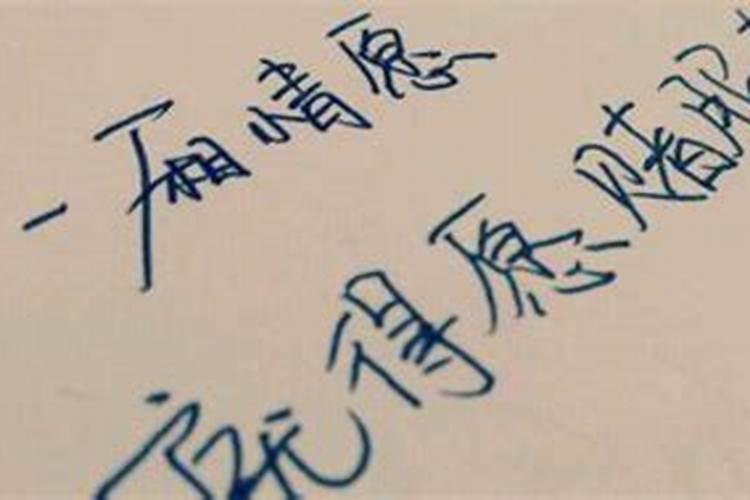 一厢情愿
就得愿赌服